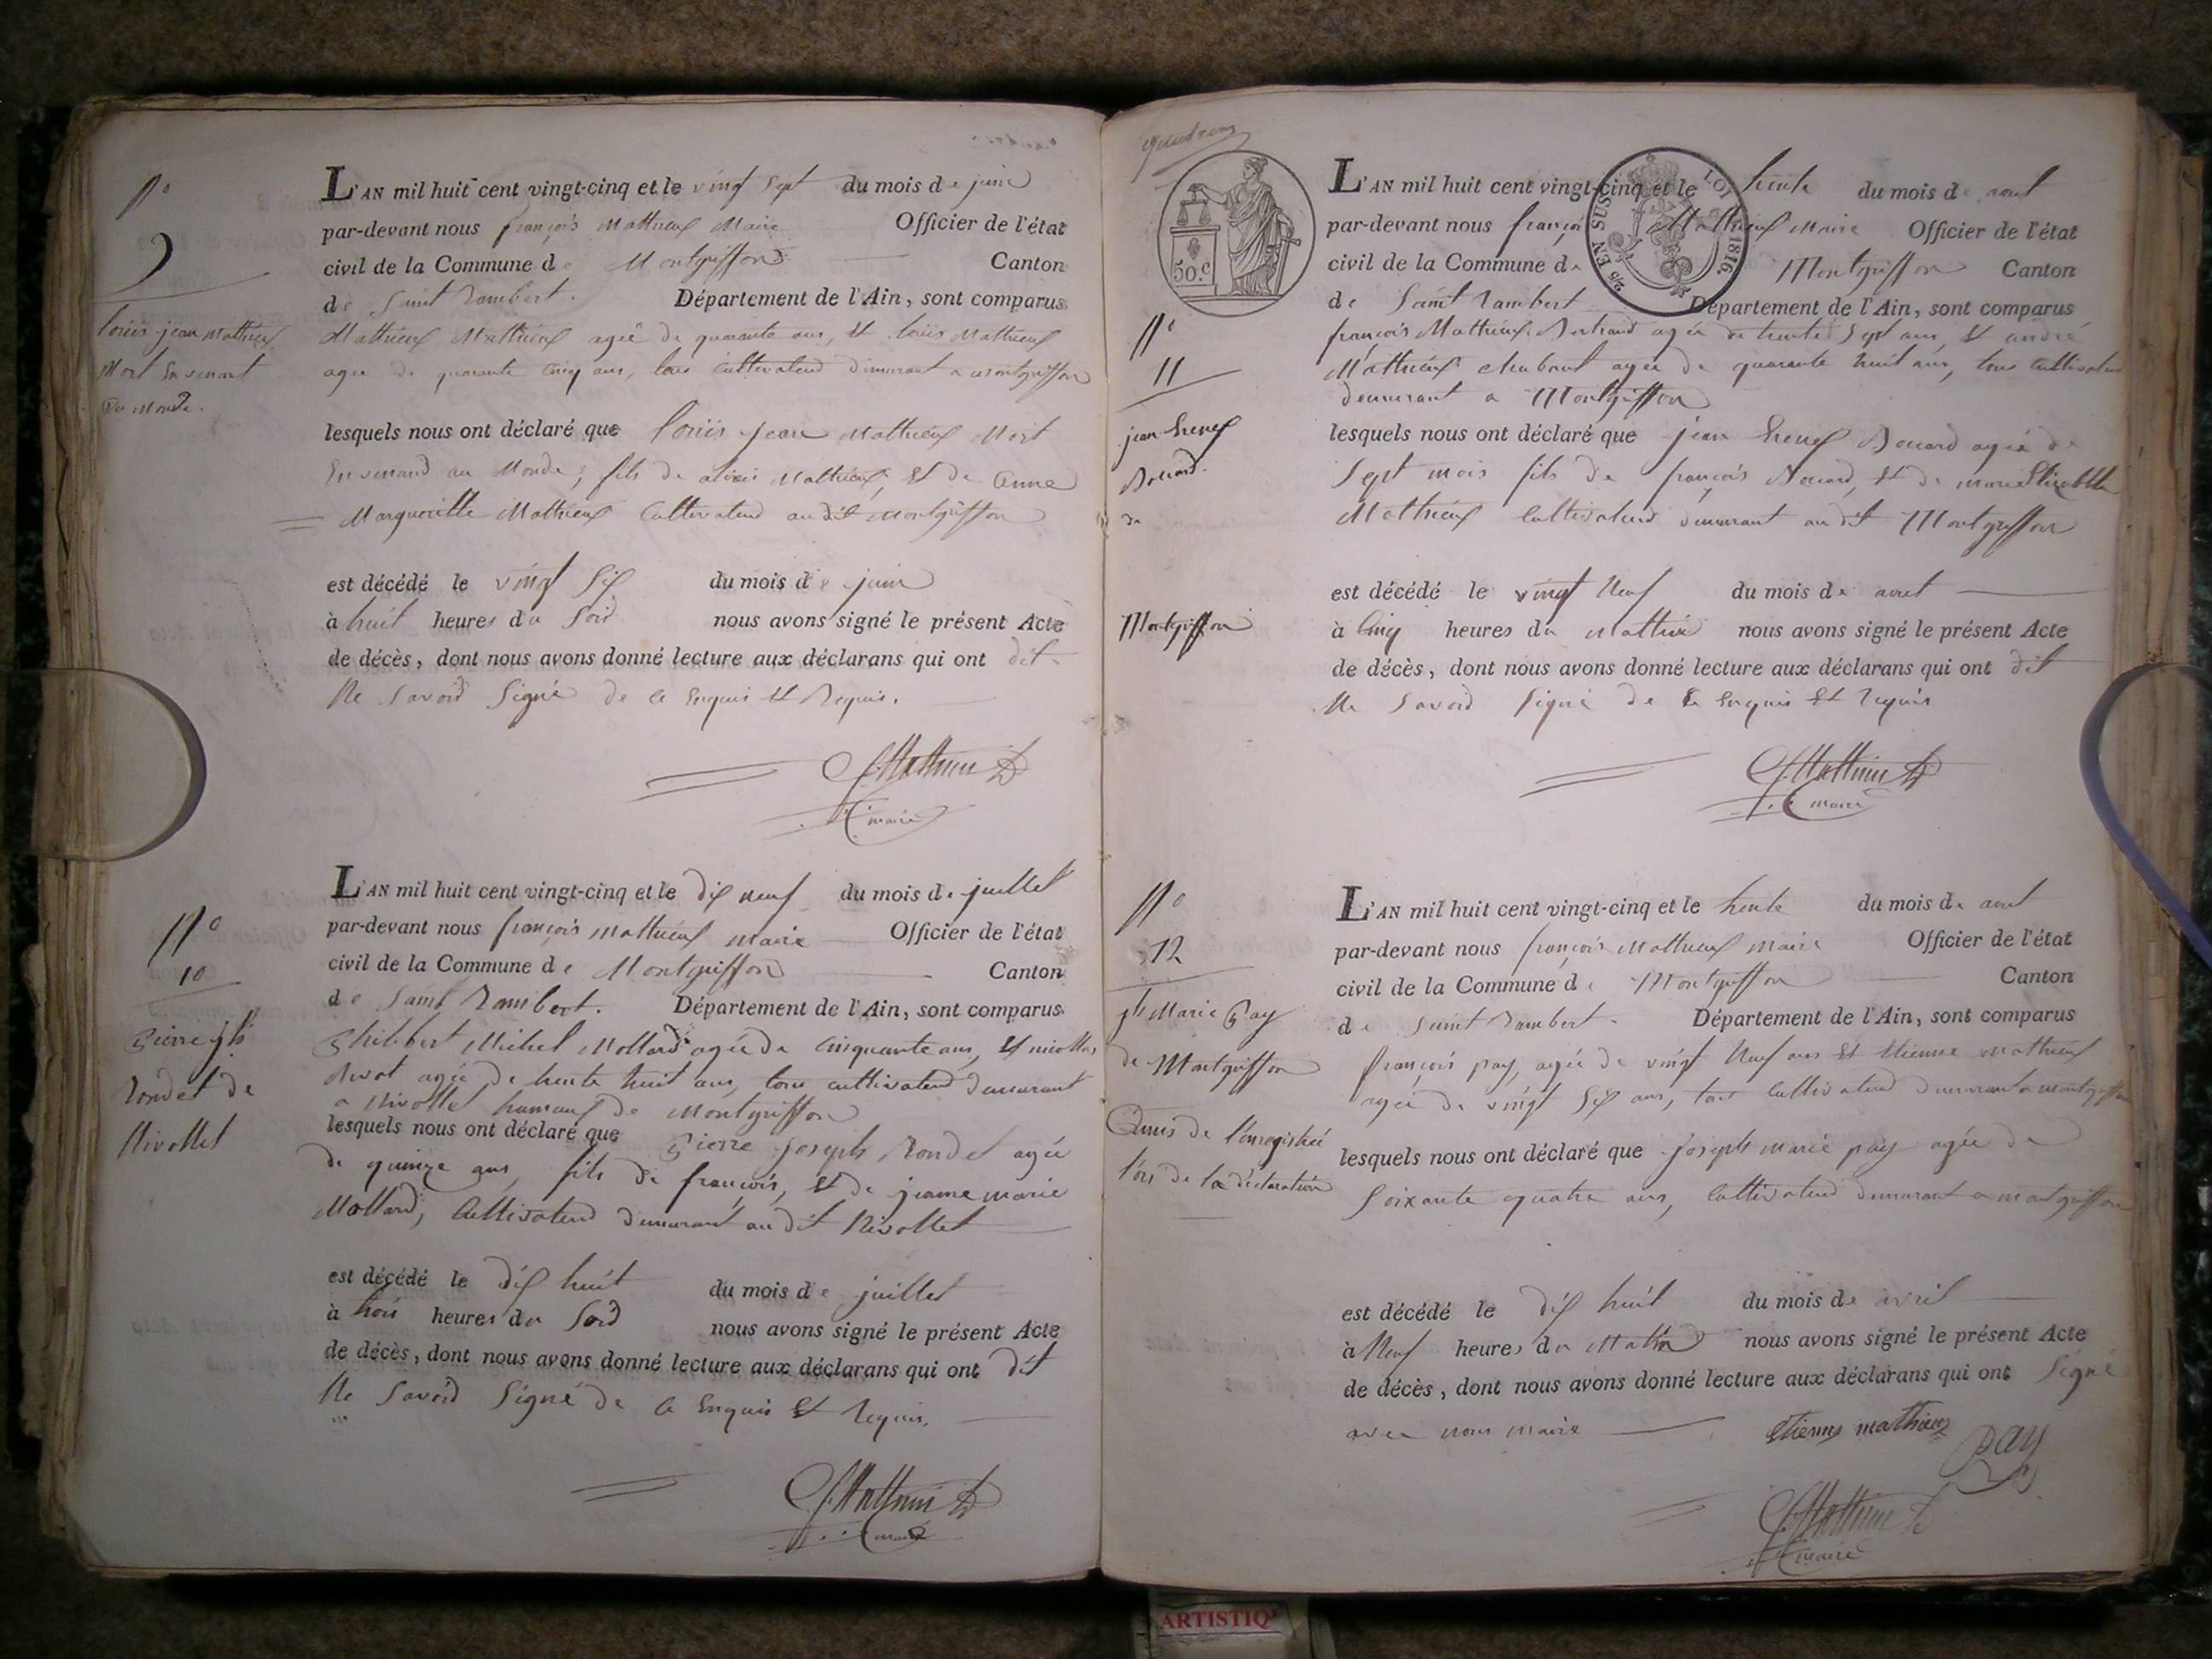 N°
9
Louis jean Mathieux
Mort En venant
Au Monde.
L'AN mil huit cent vingt-cinq et le vingt Sept du mois de juin
par-devant nous françois Mathieux Maire Officier de l'état
civil de la Commune de Montgriffon Canton
de Saint Rambert. Département de l'Ain, sont comparus
Mathieux Mathieux agée de quarante ans, Et louis Mathieux
agée de quarante Cinq ans, tous Cultivateurs demeurant a Montgriffon
lesquels nous ont déclaré que louis jean Mathieux Mort
En venand au Monde; fils de Mathieux, Et de Anne
Margueritte Mathieux Cultivateur au dit Montgriffon
est décédé le vingt Six du mois de juin
à huit heures du Soir nous avons signé le présent Acte
de décès, dont nous avons donné lecture aux déclarans qui ont dit
Ne Savoir Signé de ce Enquis Et Requis.
f Mathieu
maire
N°
10
Pierre jph
Rondet de
Nivollet
L'AN mil huit cent vingt-cinq et le dix neuf du mois de juillet
par-devant nous françois Mathieux maire Officier de l'état
civil de la Commune de Montgriffon Canton
de Saint Rambert. Département de l'Ain, sont comparus
Philibert Michel Mollard agée de Cinquante ans, Et nicollas
agée de trente huit ans, tous cultivateurs demeurant
a Nivollet hameaux de Montgriffon
lesquels nous ont déclaré que Pierre joseph Rondet agée
de quinze ans, fils de françois, Et de jeanne marie
Mollard, Cultivateur demeurant au dit Nivollet
est décédé le dix huit du mois de juillet
à trois heures du Soir nous avons signé le présent Acte
de décès, dont nous avons donné lecture aux déclarans qui ont dit
Ne Savoir Signé de ce Enquis Et Requis.
f Mathieu
maire
50.C
EN SUS LOI 1816.
N°
11
jean
Bouard.
du
Montgriffon
L'AN mil huit cent vingt-cinq et le trente du mois de aout
par-devant nous françois Mathieux Maire Officier de l'état
civil de la Commune de Montgriffon Canton
de Saint Rambert Département de l'Ain, sont comparus
françois Mathieux Bertrand agée de trente Sept ans, Et andré
Mathieux Chabout agée de quarante huit ans, tous Cultivateurs
demeurant a Montgriffon
lesquels nous ont déclaré que jean Bouard agée de
Sept mois fils de françois Bouard, Et de marie Elisabeth
Mathieux Cultivateurs demeurant au dit Montgriffon
est décédé le vingt Neuf du mois de aout
à Cinq heures du Mattin nous avons signé le présent Acte
de décès, dont nous avons donné lecture aux déclarans qui ont dit
Ne Savoir Signé de ce Enquis Et Requis
f Mathieu
maire
N°
12
jh Marie Pay
de Montgriffon
Omis de l'enregistrée
l'ors de la déclaration
L'AN mil huit cent vingt-cinq et le trente du mois de aout
par-devant nous françois Mathieux Maire Officier de l'état
civil de la Commune de Montgriffon Canton
de Saint Rambert. Département de l'Ain, sont comparus
françois pay, agée de vingt Neuf ans Et Etienne Mathieux
agée de vingt Six ans, tous Cultivateurs demeurant a montgriffon
lesquels nous ont déclaré que joseph marie pay agée de
Soixante quatre ans, Cultivateur demeurant a montgriffon
est décédé le dix huit du mois de avril
à Neuf heures du Matin nous avons signé le présent Acte
de décès, dont nous avons donné lecture aux déclarans qui ont Signé
avec nous maire etienne mathieux pay
f Mathieu
maire
ARTISTIQ